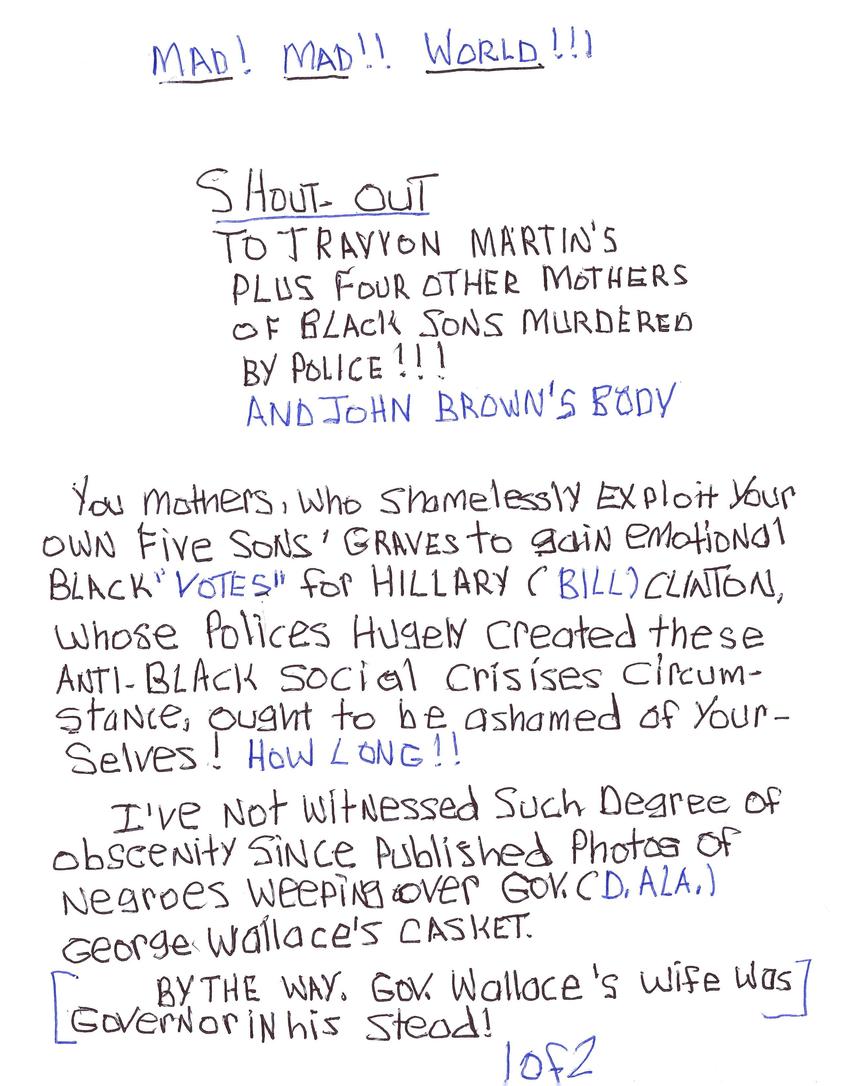 MAD! MAD!! WORLD!!!
SHOUT- OUT
TO TRAVYON MARTIN'S
PLUS FOUR OTHER MOTHERS
OF BLACK SONS MURDERED
BY POLICE!!!
AND JOHN BROWN'S BODY
You Mothers, who shamelessly EXploit Your
OWN FiVE SONS' GRAVES to gain emotional
BLACK "VOTES" for HILLARY (BILL) CLINTON,
whose Polices Hugely created these
ANTI-BLACK social crisises circum-
stance, ought to be ashamed of Your-
Selves! HOW LONG!!
I've Not WitNessed Such Degree of
obsceNity SiNCE Published Photos of
Negroes weepiNg over Gov. (D. ALA.)
George Wallace's CASKET.
[BY THE WAY. Gov. Wallace's wife was
GoverNor iN his Stead!]
1 of 2